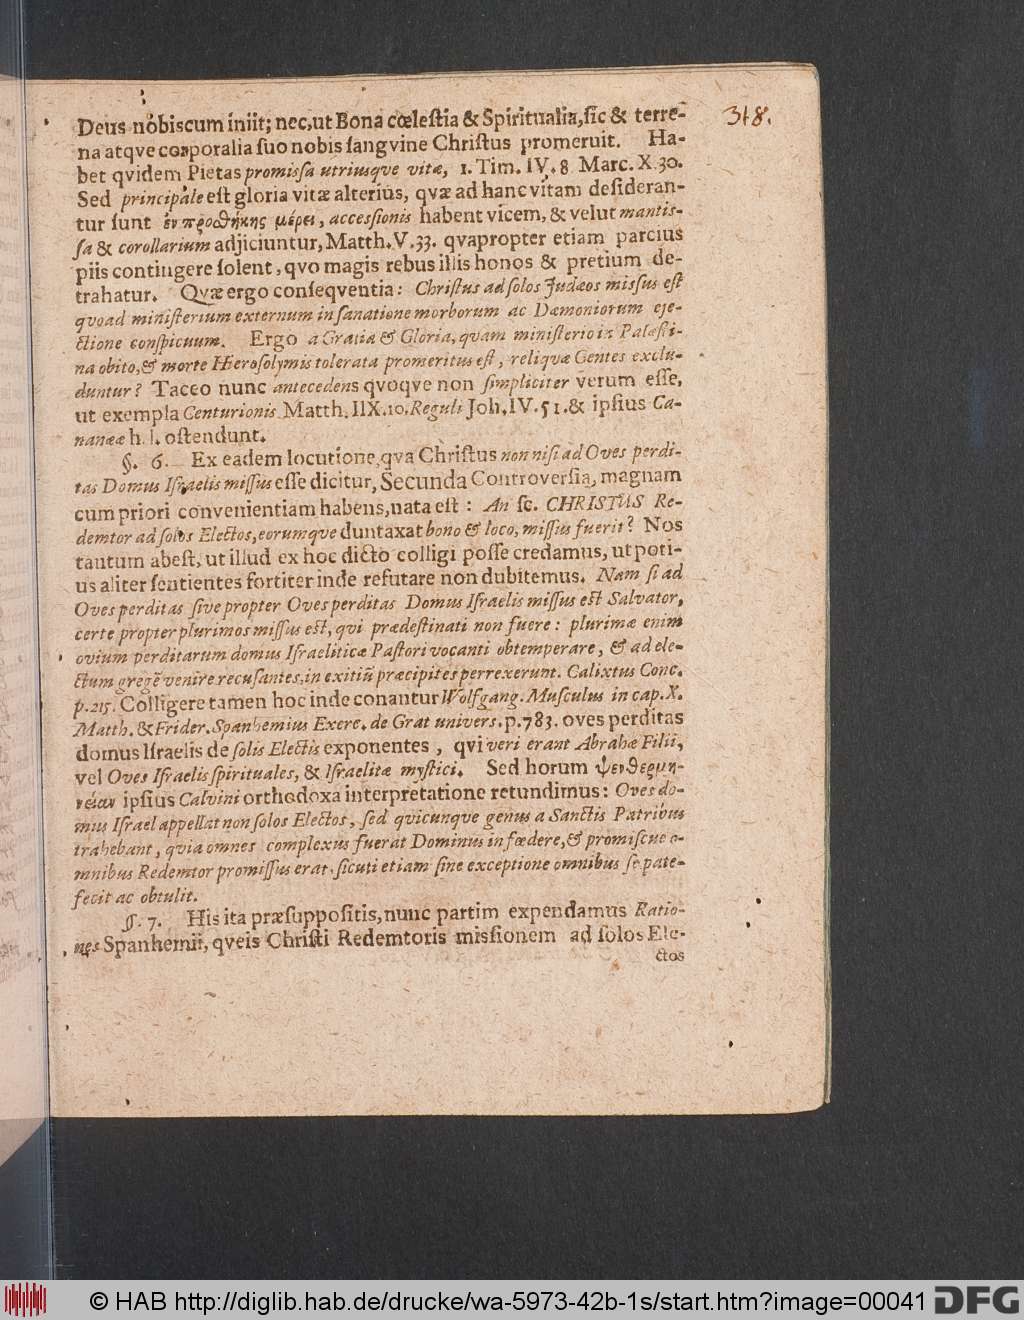 318.
Deus nobiscum iniit; nec, ut Bona cœleſtia & Spiritualia, ſic & terre-
na atqve corporalia ſuo nobis ſangvine Chriſtus promeruit. Ha-
bet qvidem Pietas promiſſa utriusque vitæ, 1. Tim. IV. 8 Marc. X. 30.
Sed principale eſt gloria vitæ alterius, qvæ ad hanc vitam deſideran-
tur ſunt ἐν προσθήκης μέρει, acceſſionis habent vicem, & velut mantiſ-
ſa & corollarium adjiciuntur, Matth. V. 33. qvapropter etiam parcius
piis contingere ſolent, qvo magis rebus illis honos & pretium de-
trahatur. Qvæ ergo conſeqventia: Chriſtus ad ſolos Judæos miſſus eſt
quoad miniſterium externum in ſanatione morborum ac Dæmoniorum eje-
ctione conſpicuum. Ergo a Gratia & Gloria, quam miniſterio in Palæſti-
na obito, & morte Hieroſolymis tolerata promeritus eſt, reliquæ Gentes exclu-
duntur? Taceo nunc antecedens qvoqve non ſimpliciter verum eſſe,
ut exempla Centurionis Matth. IIX. 10. Reguli Joh. IV. 51. & ipſius Ca-
nanææ h. l. oſtendunt.
§. 6. Ex eadem locutione, qva Chriſtus non niſi ad Oves perdi-
tas Domus Iſraelis miſſus eſſe dicitur, Secunda Controverſia, magnam
cum priori convenientiam habens, nata eſt: An ſc. CHRISTUS Re-
demtor ad ſolos Electos, eorumque duntaxat bono & loco, miſſus fuerit? Nos
tantum abeſt, ut illud ex hoc dicto colligi poſſe credamus, ut poti-
us aliter ſentientes fortiter inde refutare non dubitemus. Nam ſi ad
Oves perditas ſive propter Oves perditas Domus Iſraelis miſſus eſt Salvator,
certe propter plurimos miſſus eſt, qvi prædeſtinati non fuere: plurimæ enim
ovium perditarum domus Iſraeliticæ Paſtori vocanti obtemperare, & ad ele-
ctum gregē venire recuſantes, in exitiū præcipites perrexerunt. Calixtus Conc.
p. 215. Colligere tamen hoc inde conantur Wolfgang. Muſculus in cap. X.
Matth. & Frider. Spanhemius Exerc. de Grat univers. p. 783. oves perditas
domus Iſraelis de ſolis Electis exponentes, qvi veri erant Abrahæ Filii,
vel Oves Iſraelis ſpirituales, & Iſraelitæ myſtici. Sed horum ψευδερμη-
νείαν ipſius Calvini orthodoxa interpretatione retundimus: Oves do-
mus Iſrael appellat non ſolos Electos, ſed qvicunque genus a Sanctis Patribus
trahebant, qvia omnes complexus fuerat Dominus in fœdere, & promiſcue o-
mnibus Redemtor promiſſus erat, ſicuti etiam ſine exceptione omnibus ſe pate-
fecit ac obtulit.
§. 7. His ita præſuppoſitis, nunc partim expendamus Ratio-
nes Spanhemii, qveis Chriſti Redemtoris miſſionem ad ſolos Ele-
ctos
© HAB http://diglib.hab.de/drucke/wa-5973-42b-1s/start.htm?image=00041
DFG